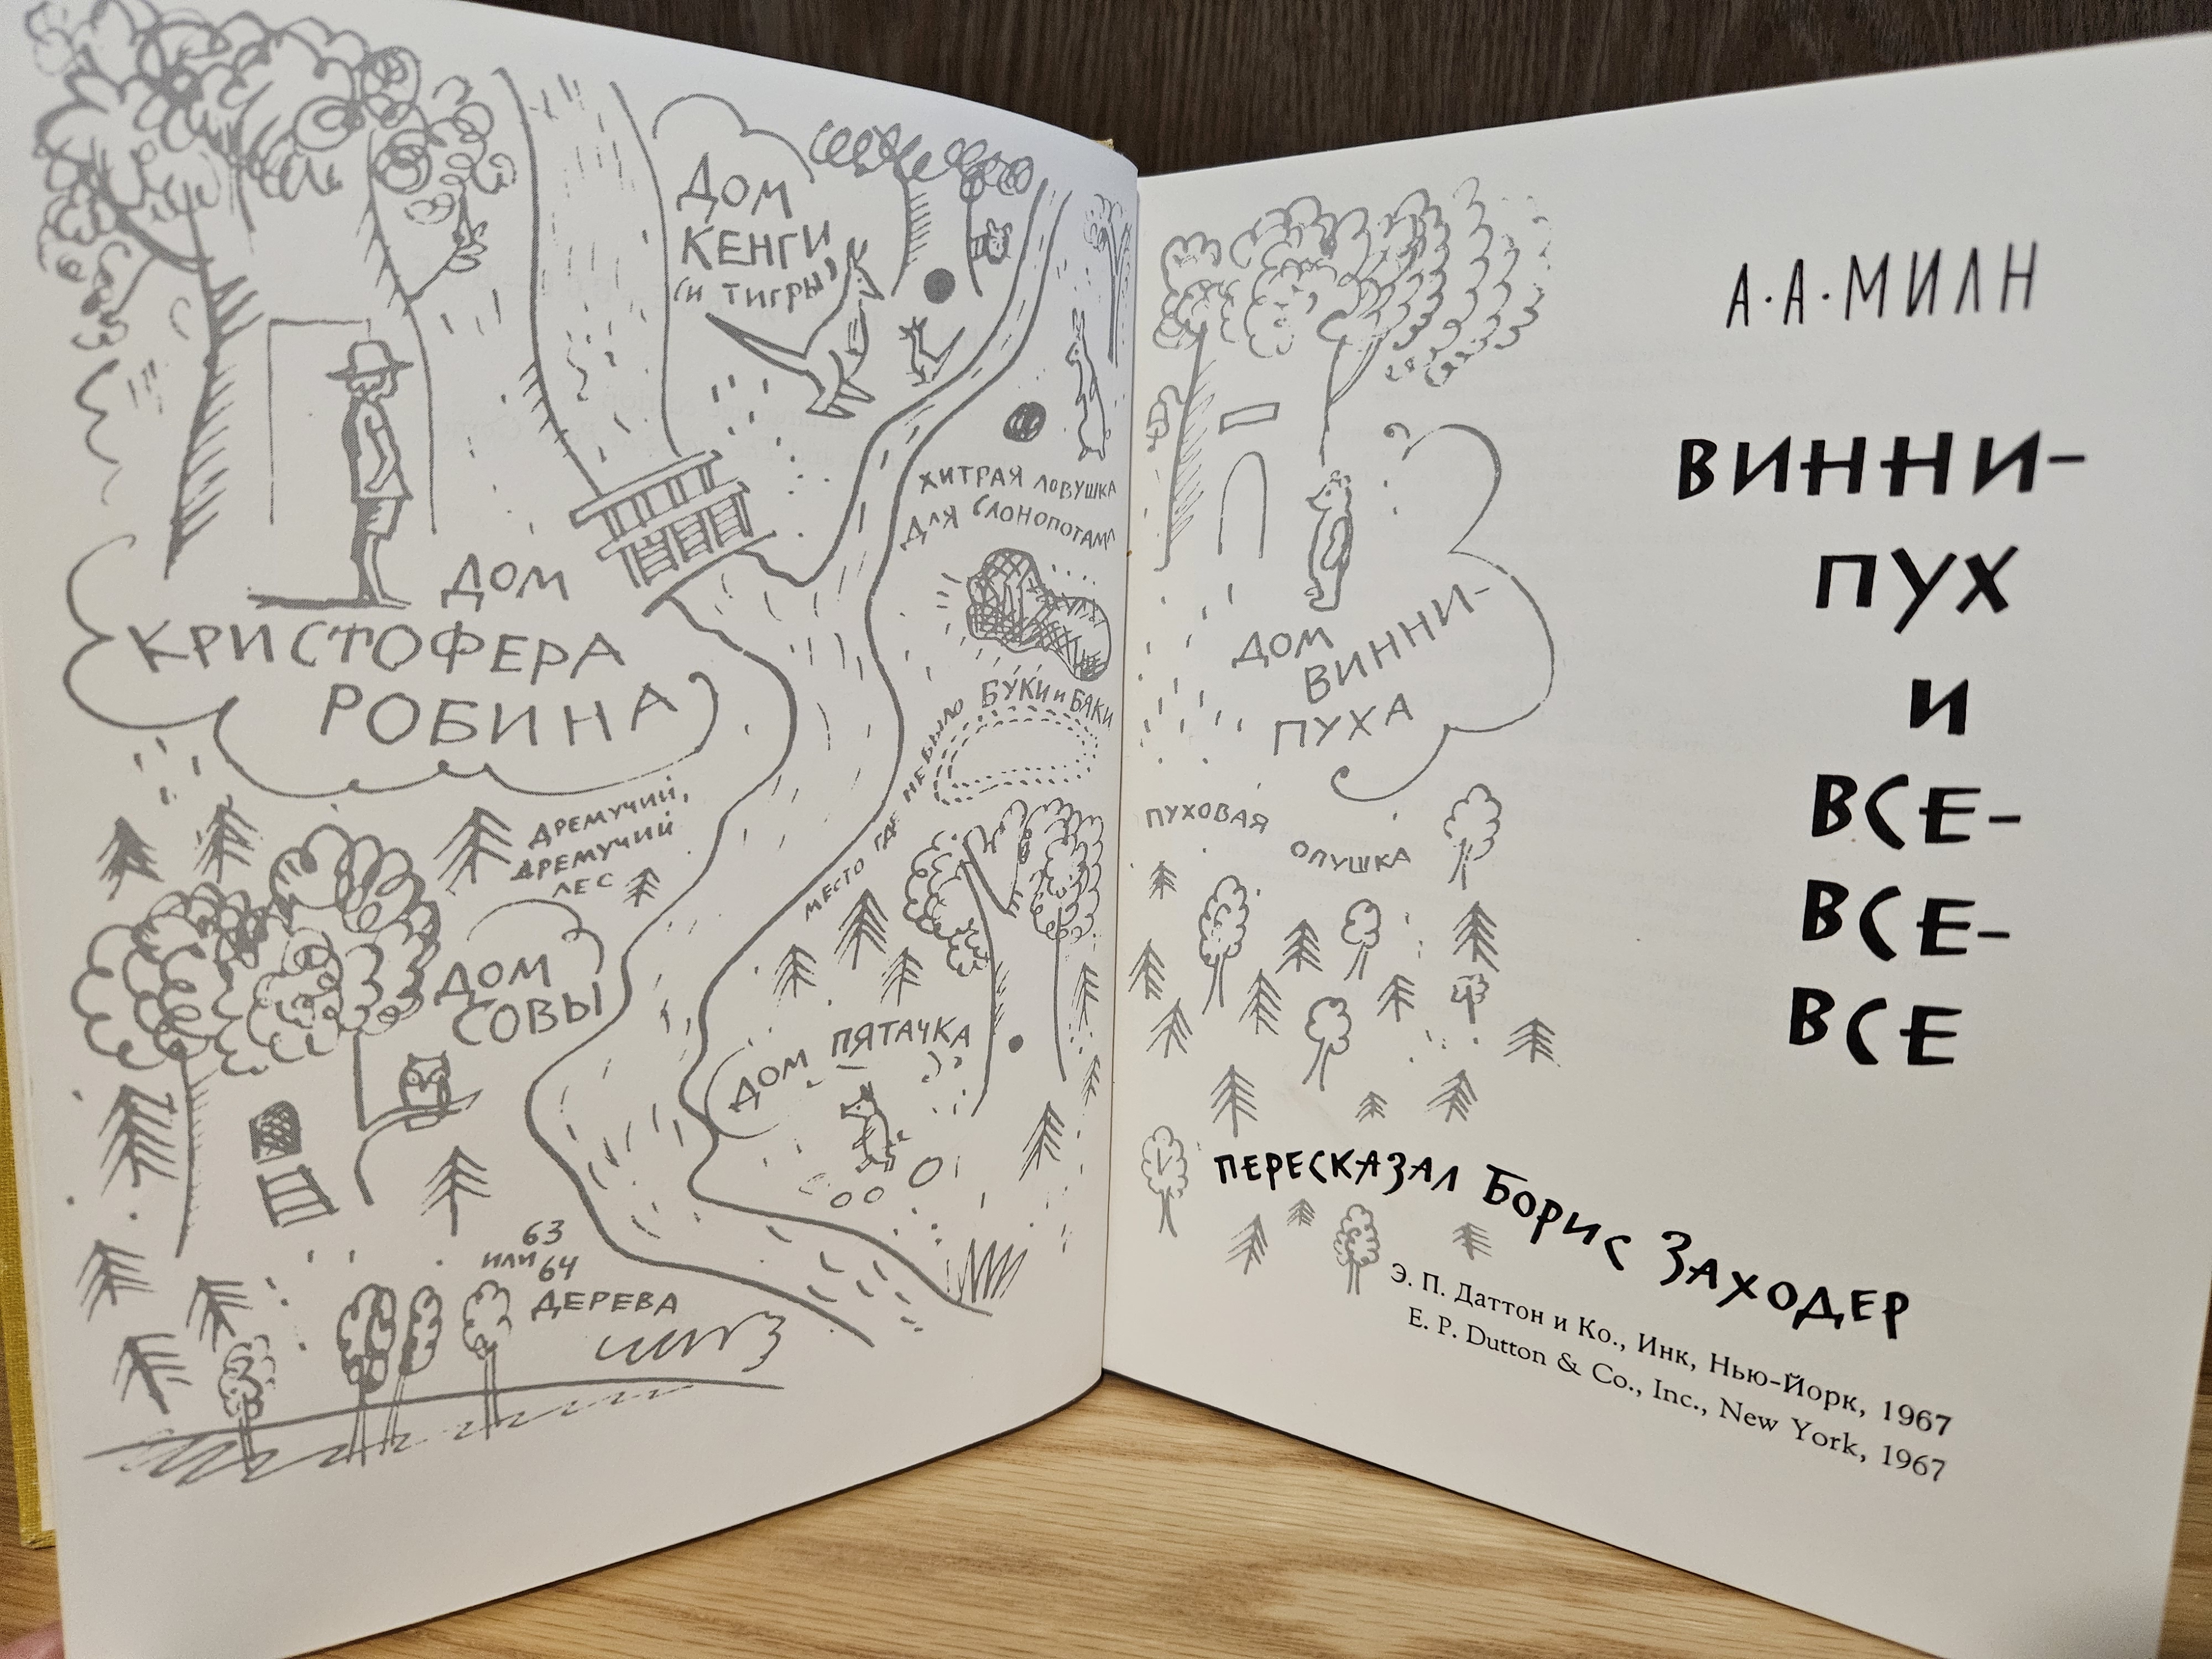 ДОМ
КЕНГИ
(И ТИГРЫ)
ХИТРАЯ ЛОВУШКА
ДЛЯ СЛОНОПОТАМА
ДОМ
КРИСТОФЕРА
РОБИНА
МЕСТО ГДЕ НЕ БЫЛО БУКИ И БЯКИ
ДРЕМУЧИЙ,
ДРЕМУЧИЙ
ЛЕС
ДОМ
СОВЫ
ДОМ ПЯТАЧКА
63
ИЛИ 64
ДЕРЕВА
ДОМ
ВИННИ-
ПУХА
ПУХОВАЯ
ОПУШКА
А·А·МИЛН
ВИННИ-
ПУХ
И
ВСЕ-
ВСЕ-
ВСЕ
ПЕРЕСКАЗАЛ БОРИС ЗАХОДЕР
Э. П. Даттон и Ко., Инк, Нью-Йорк, 1967
E. P. Dutton & Co., Inc., New York, 1967